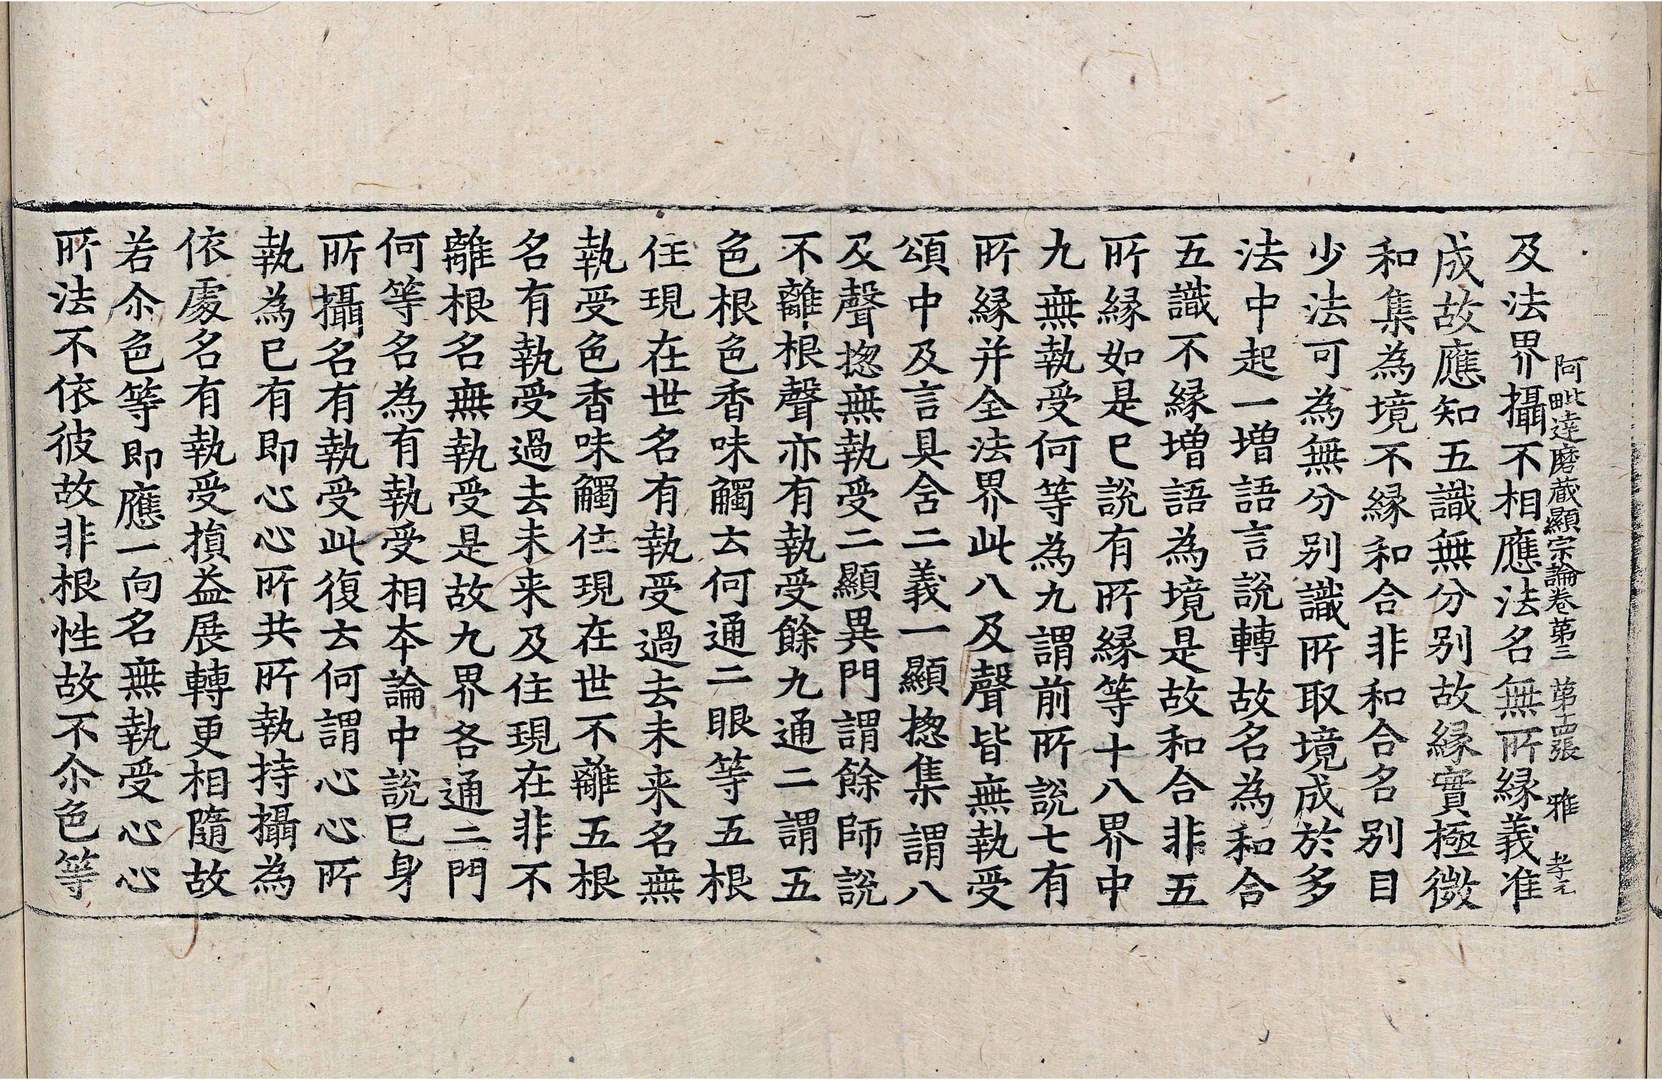 阿毗達磨藏顯宗論卷第三 第十五張 雅 孝元
及法界攝不相應法名無所緣義准
成故應知五識無分別故緣實極微
和集為境不緣和合非和合名別目
少法可為無分別識所取境成於多
法中起一增語言說轉故名為和合
五識不緣增語為境是故和合非五
所緣如是已說有所緣等十八界中
九無執受何等為九謂前所說七有
所緣并全法界此八及聲皆無執受
頌中及言具含二義一顯揔集謂八
及聲揔無執受二顯異門謂餘師說
不離根聲亦有執受餘九通二謂五
色根色香味觸云何通二眼等五根
住現在世名有執受過去未来名無
執受色香味觸住現在世不離五根
名有執受過去未来及住現在非不
離根名無執受是故九界各通二門
何等名為有執受相本論中說已身
所攝名有執受此復云何謂心心所
執為已有即心心所共所執持攝為
依處名有執受損益展轉更相隨故
若尒色等即應一向名無執受心心
所法不依彼故非根性故不尒色等